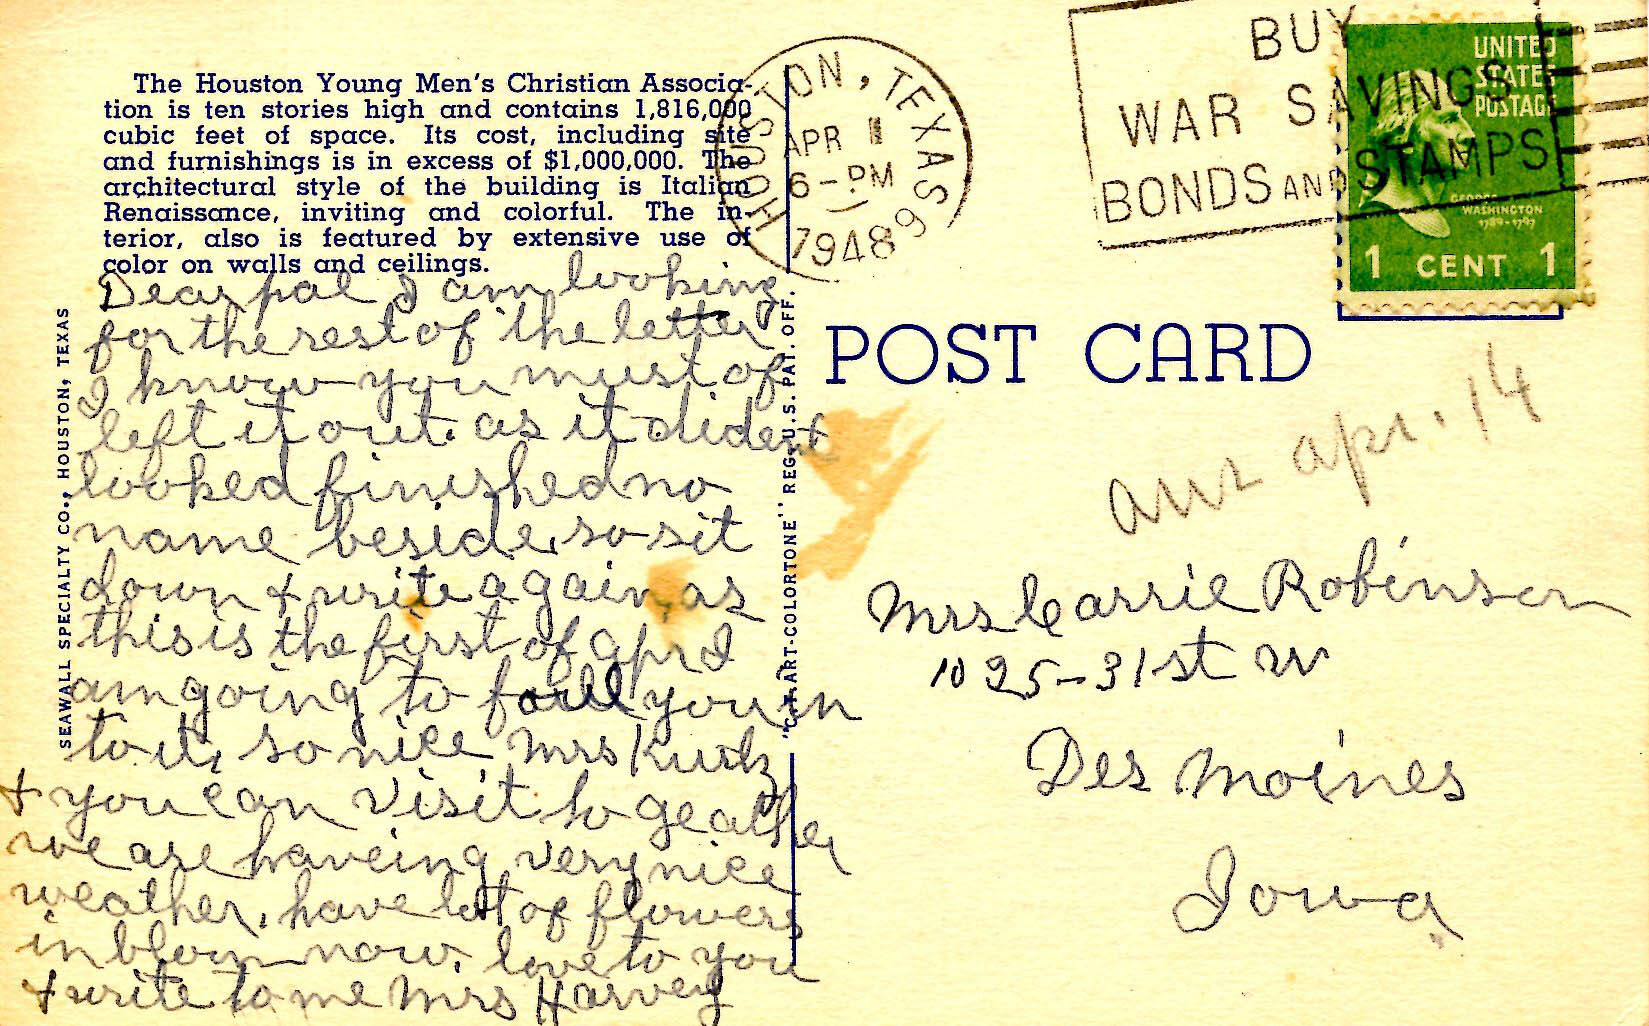 The Houston Young Men's Christian Associa-
tion is ten stories high and contains 1,816,000
cubic feet of space. Its cost, including site
and furnishings is in excess of $1,000,000. The
architectural style of the building is Italian
Renaissance, inviting and colorful. The in-
terior, also is featured by extensive use of
color on walls and ceilings.
Dear pal I am looking
for the rest of the letter
I know you must of
left it out. as it dident
looked finished no
name beside, so sit
down & write again as
this is the first of Apr I
am going to fooll you in
to it, so nice Mrs Kurtz
& you can visit to geather
we are haveing very nice
weather, have lot of flowers
in bloom now. love to you
& write to me Mrs Harvey
SEAWALL SPECIALTY CO., HOUSTON, TEXAS
"C.T. ART-COLORTONE" REG. U.S. PAT. OFF.
HOUSTON, TEXAS
APR 1
6 - PM
1948
BUY
WAR SAVINGS
BONDS AND STAMPS
UNITED
STATES
POSTAGE
GEORGE
WASHINGTON
1789-1797
1 CENT 1
POST CARD
ans Apr. 14
Mrs Carrie Robinson
1025-31st W
Des Moines
Iowa